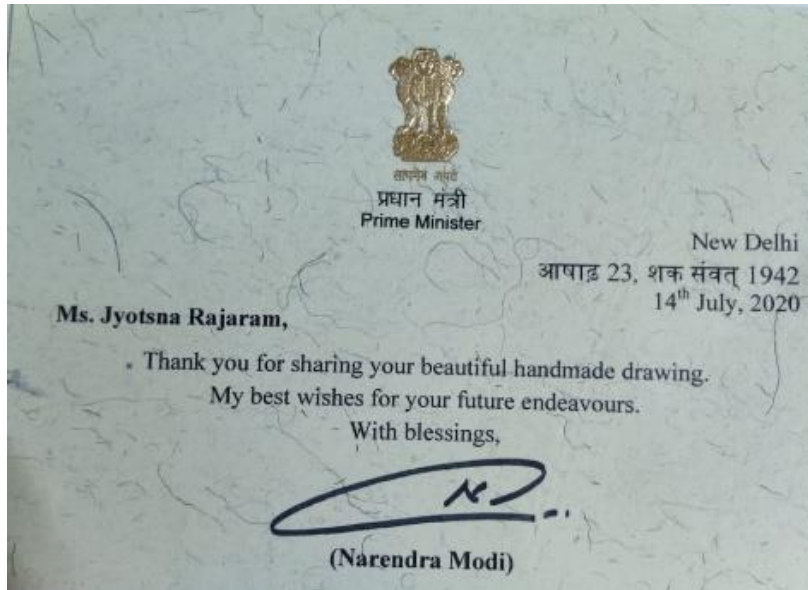 सत्यमेव जयते
प्रधान मंत्री
Prime Minister
New Delhi
आषाढ़ 23, शक संवत् 1942
14th July, 2020
Ms. Jyotsna Rajaram,
Thank you for sharing your beautiful handmade drawing.
My best wishes for your future endeavours.
With blessings,
(Narendra Modi)